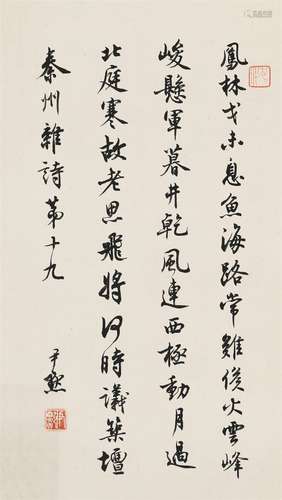 鳳林戈未息魚海路常難候火雲峰
峻懸軍暮井乾風連西極動月過
北庭寒故老思飛將何時議築壇
秦州雜詩第十九
尹默